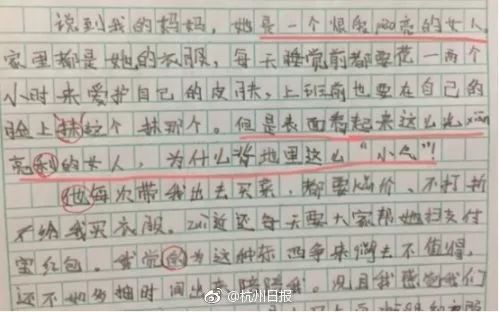 说到我的妈妈，她是一个很会漂亮的女人，
家里都是她的衣服，每天睡觉前都要花一两个
小时来爱护自己的皮肤，上班前也要在自己的
脸上抹这个抹那个。但是表面看起来这么光xiān
亮利的女人，为什么背地里这么“小气”！
他每次带我出去买菜，都要 价、不打折
不给我买衣服。zuì近还每天要大家帮她扫支付
宝红包。我觉的为这种东西争来 去不值得，
还不如多抽时间出来陪陪我。况且我感觉我们
@杭州日报